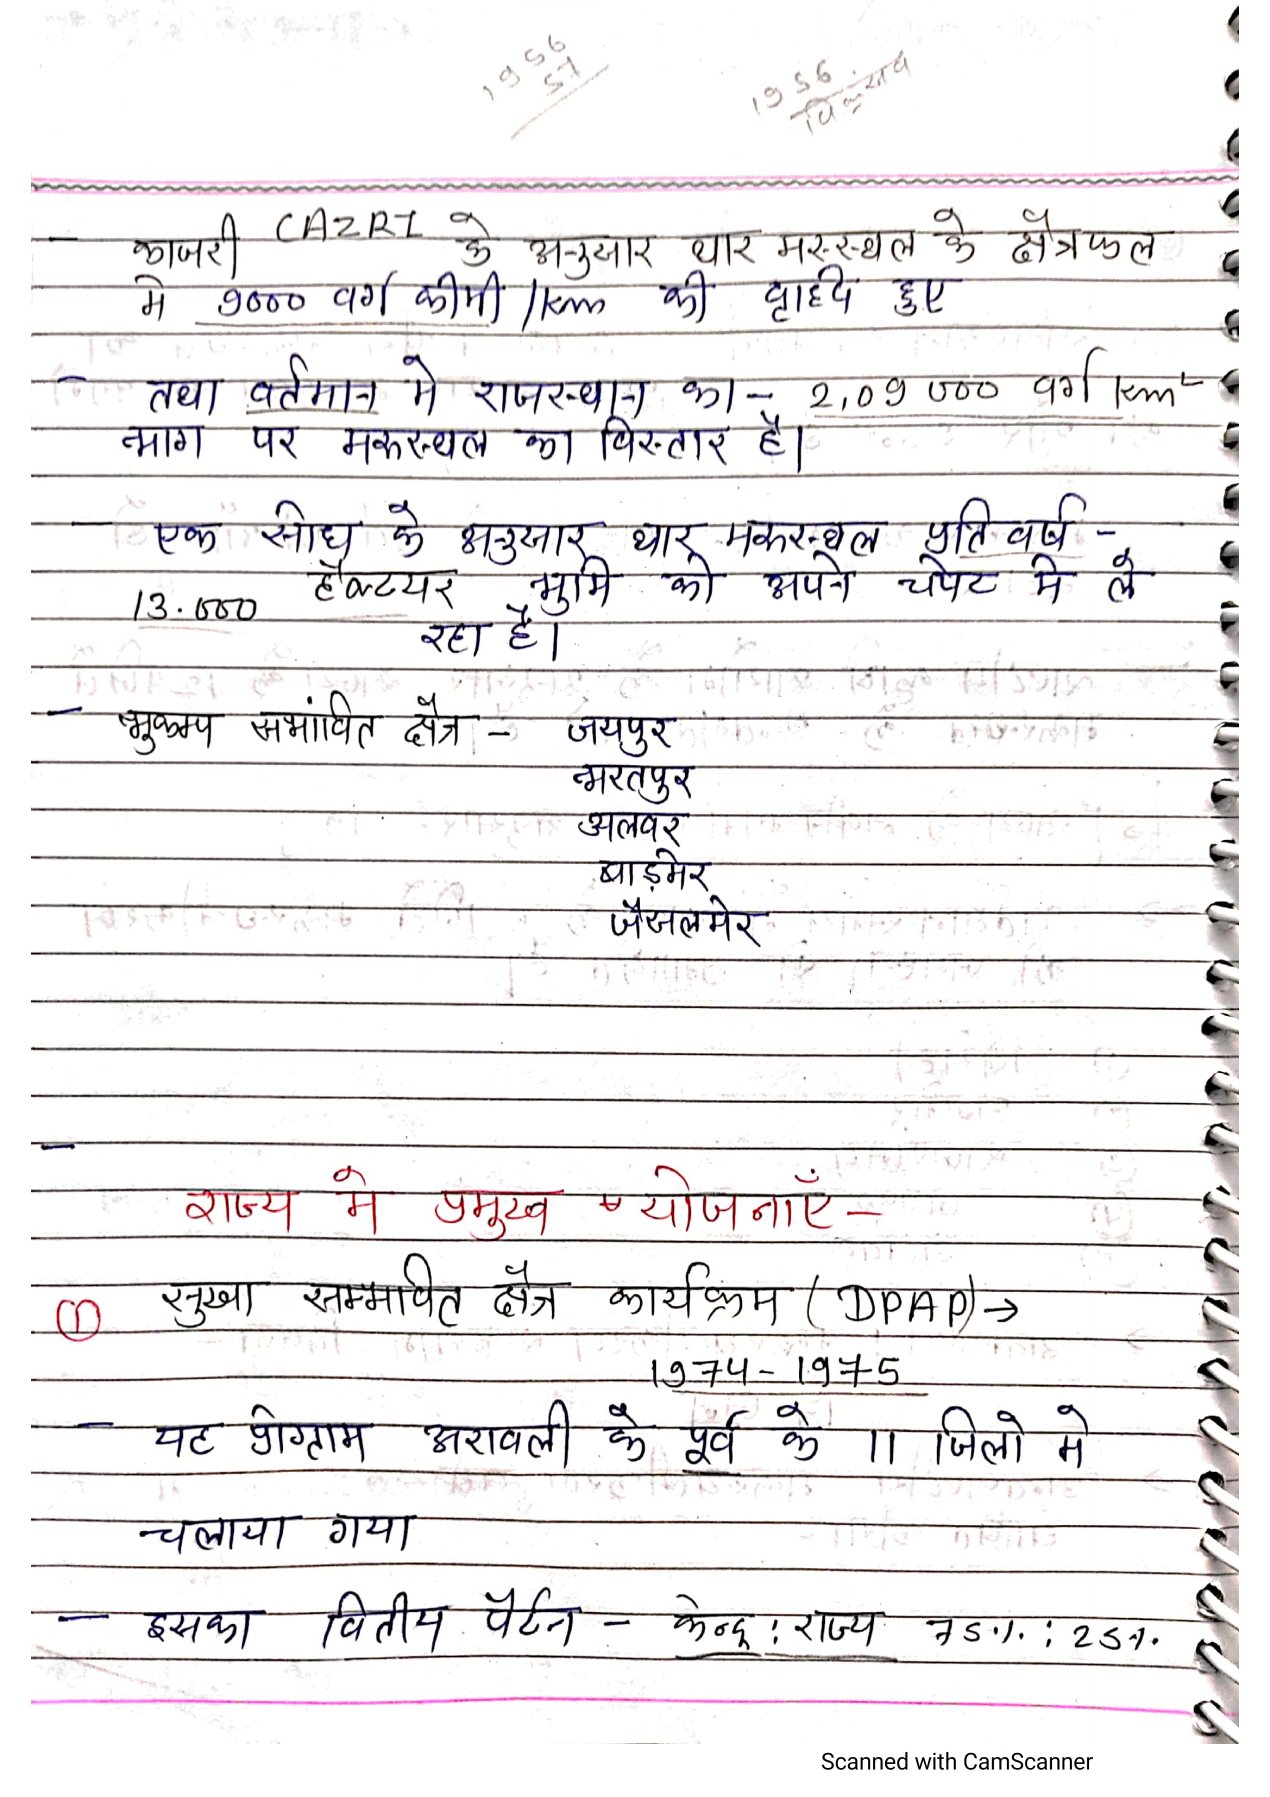 1956
57
1956
काजरी CAZRI के अनुसार थार मरूस्थल के क्षैत्रफल
मे 9000 वर्ग कीमी /km की वृद्दि हुए
- तथा वर्तमान मे राजस्थान का - 2,09000 वर्ग km²
भाग पर मरूस्थल का विस्तार है।
- एक सोध के अनुसार थार मरूस्थल प्रति वर्ष -
13.000 हैक्टयर भुमि को अपने चपेट मे ले
रहा है।
- भुकम्प सभांवित क्षैत्र - जयपुर
भरतपुर
अलवर
बाड़मेर
जैसलमेर
-
राज्य मे प्रमुख योजनाएँ -
① सुखा सम्भावित क्षैत्र कार्यक्रम (DPAP) →
1974-1975
- यह प्रोग्राम अरावली के पूर्व के 11 जिलो मे
चलाया गया
- इसका वितीय पैर्टन - केन्द्र : राज्य 75% : 25%
Scanned with CamScanner